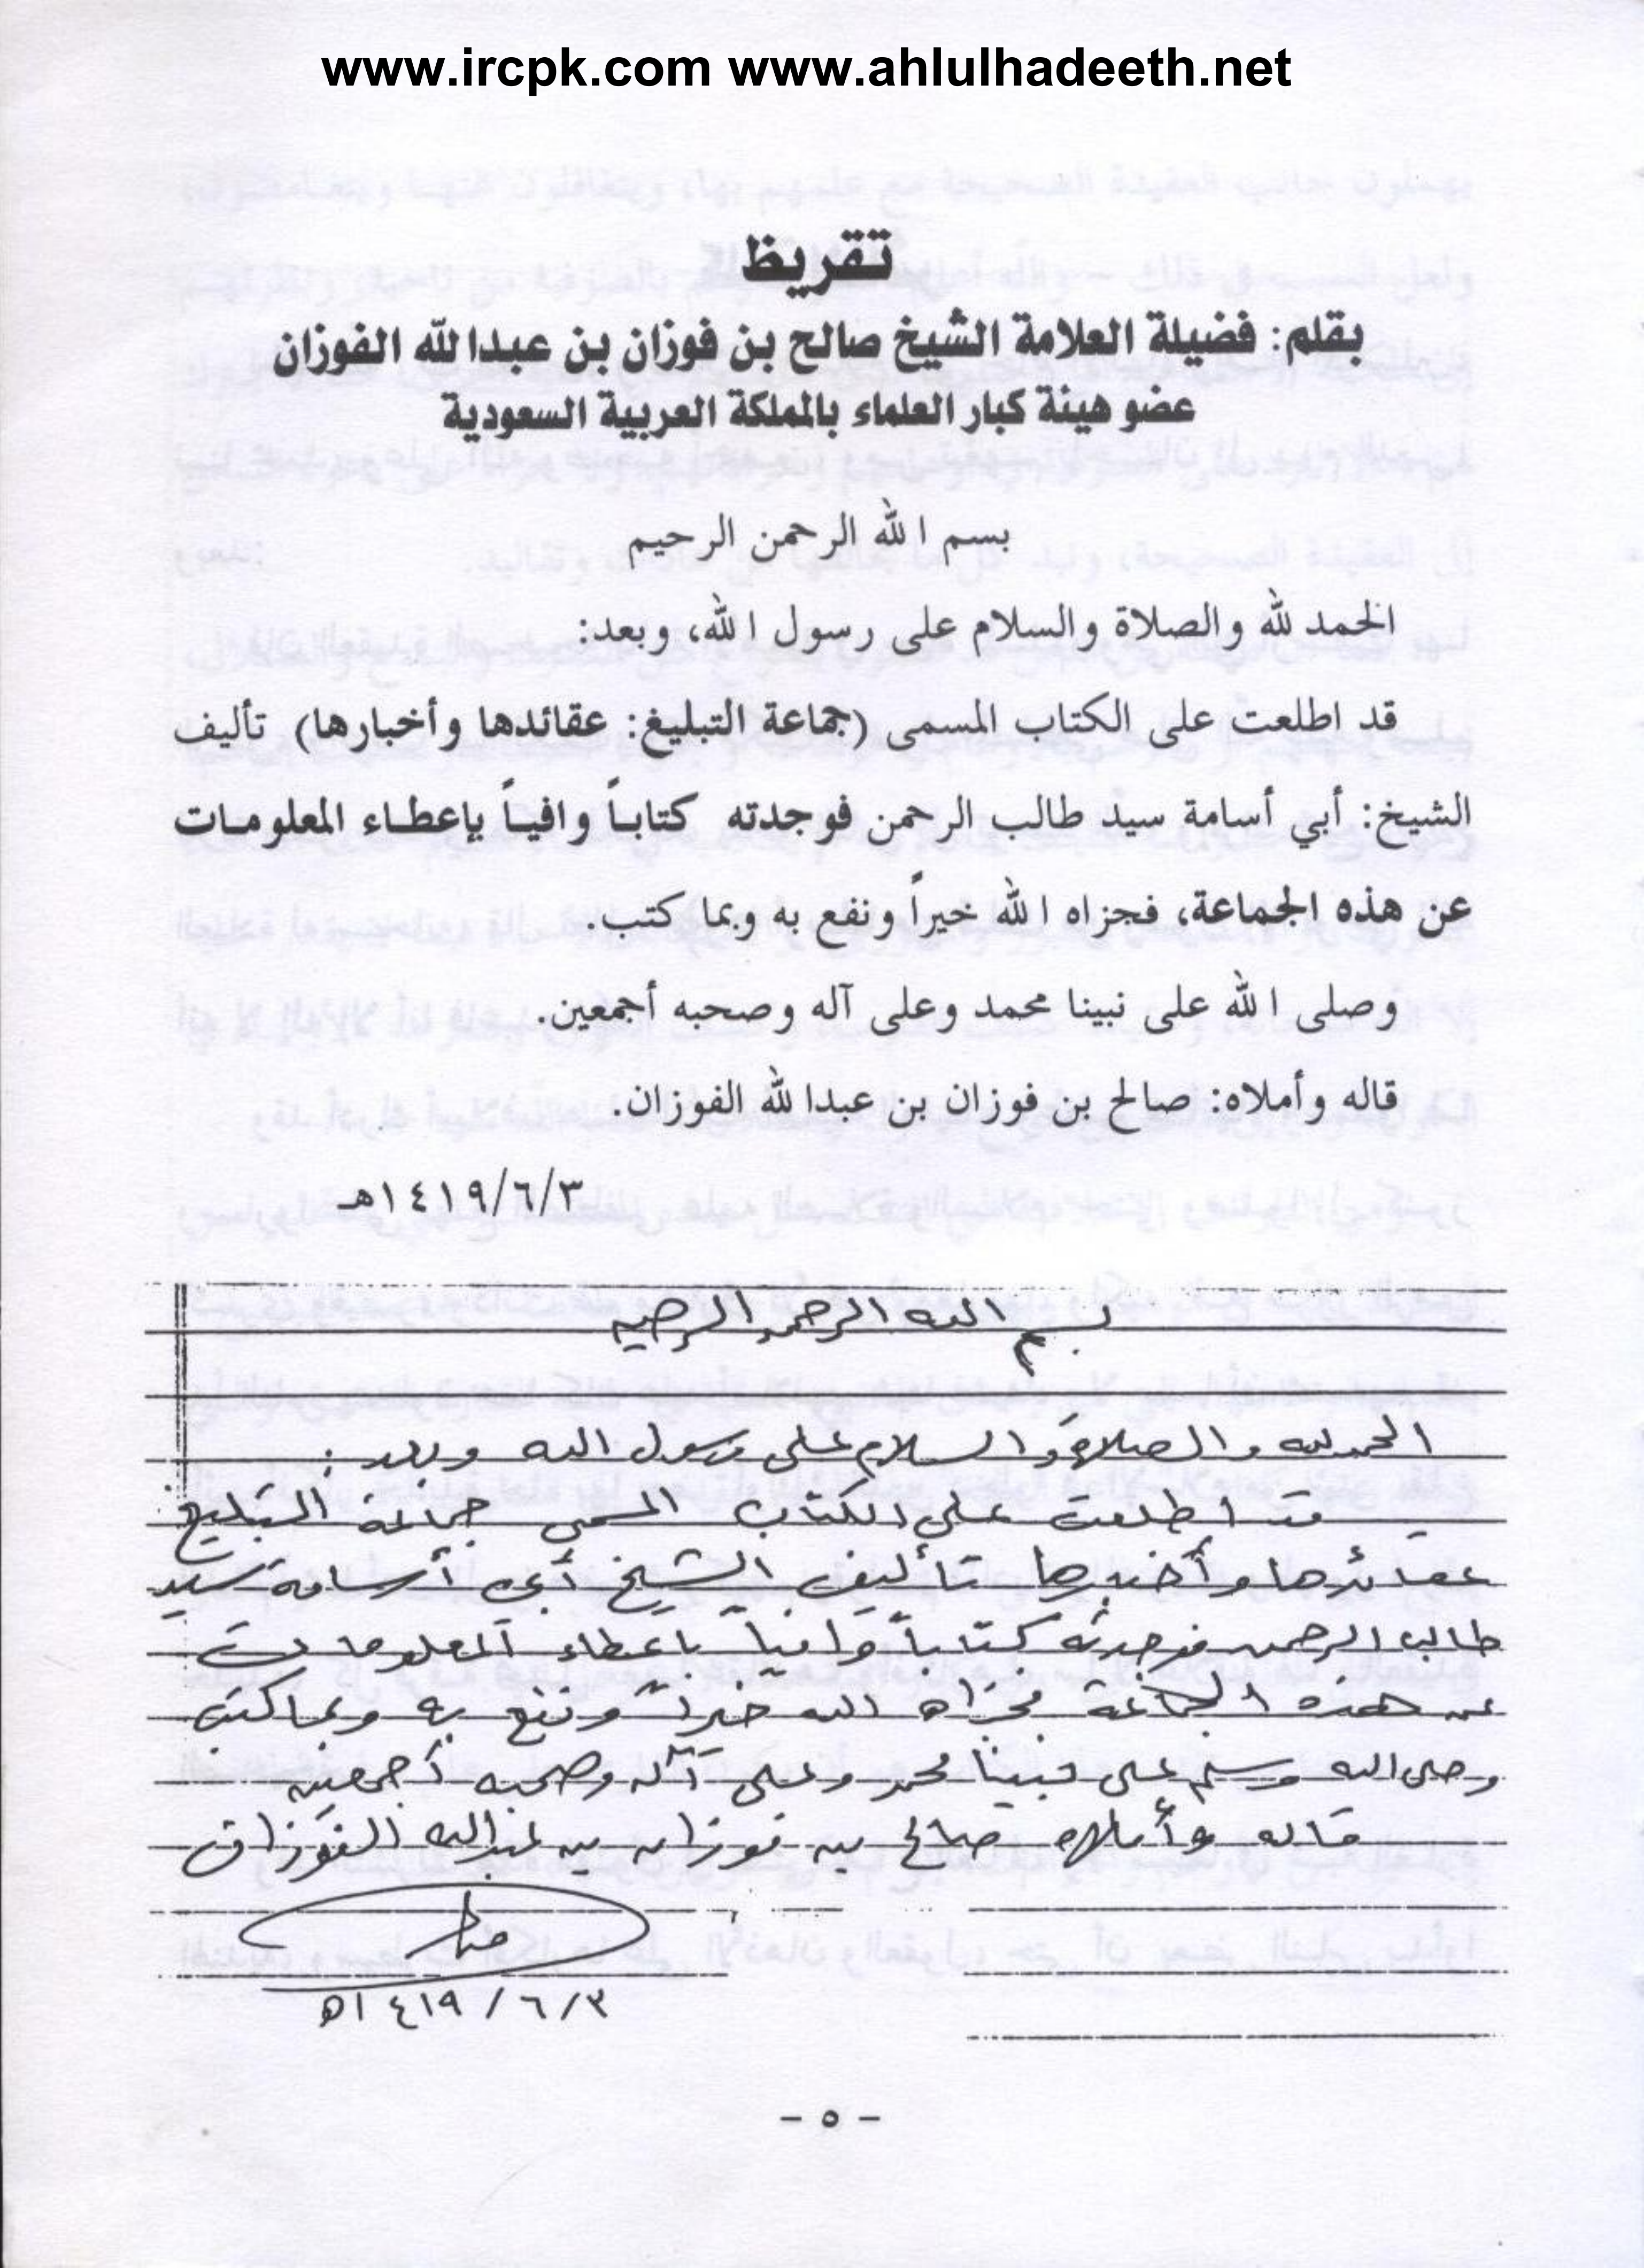 www.ircpk.com www.ahlulhadeeth.net
تقريظ
بقلم: فضيلة العلامة الشيخ صالح بن فوزان بن عبدا لله الفوزان
عضو هيئة كبار العلماء بالمملكة العربية السعودية
بسم ا لله الرحمن الرحيم
الحمد لله والصلاة والسلام على رسول ا لله، وبعد:
قد اطلعت على الكتاب المسمى (جماعة التبليغ: عقائدها وأخبارها) تأليف
الشيخ: أبي أسامة سيد طالب الرحمن فوجدته كتاباً وافياً بإعطاء المعلومات
عن هذه الجماعة، فجزاه ا لله خيراً ونفع به وبما كتب.
وصلى ا لله على نبينا محمد وعلى آله وصحبه أجمعين.
قاله وأملاه: صالح بن فوزان بن عبدا لله الفوزان.
١٤١٩/٦/٣هـ
بسم الله الرحمن الرحيم
الحمد لله والصلاة والسلام على رسول الله وبعد:
قد اطلعت على الكتاب المسمى جماعة التبليغ
عقائدها وأخبارها تأليف الشيخ أبي أسامة سيد
طالب الرحمن فوجدته كتاباً وافياً باعطاء المعلومات
عن هذه الجماعة فجزاه الله خيراً ونفع به وبما كتب
وصلى الله وسلم على نبينا محمد وعلى آله وصحبه أجمعين
قاله وأملاه صالح بن فوزان بن عبدالله الفوزان
١٤١٩/٦/٣ھ
- ٥ -